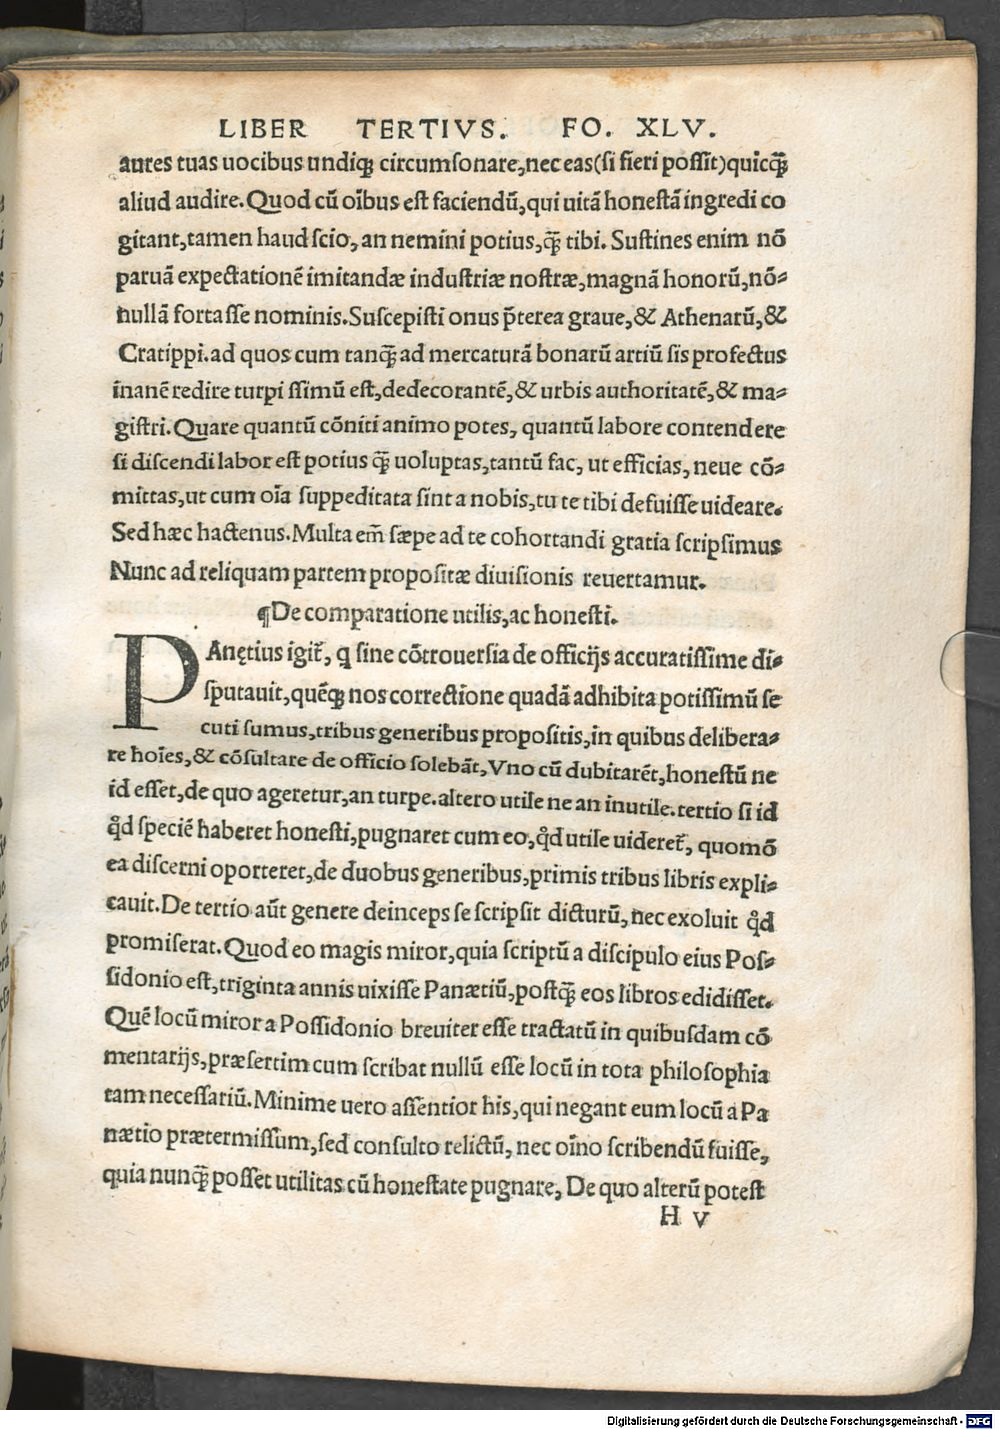 LIBER TERTIVS. FO. XLV.
aures tuas uocibus undiqꝫ circumsonare,nec eas(si fieri possit)quicq̃ꝫ
aliud audire.Quod cũ oĩbus est faciendũ,qui uitã honestã ingredi co
gitant,tamen haud scio, an nemini potius,q̃ꝫ tibi. Sustines enim nõ
paruã expectationẽ imitandæ industriæ nostræ,magnã honorũ,nõ-
nullã fortasse nominis.Suscepisti onus p̃terea graue,& Athenarũ,&
Cratippi.ad quos cum tanq̃ꝫ ad mercaturã bonarũ artiũ sis profectus
inanẽ redire turpi ssimũ est,dedecorantẽ,& urbis authoritatẽ,& ma-
gistri.Quare quantũ cõniti animo potes, quantũ labore contendere
si discendi labor est potius q̃ꝫ uoluptas,tantũ fac, ut efficias, neue cõ-
mittas,ut cum oĩa suppeditata sint a nobis,tu te tibi defuisse uideare.
Sed hæc hactenus.Multa em̃ sæpe ad te cohortandi gratia scripsimus
Nunc ad reliquam partem propositæ diuisionis reuertamur.
¶De comparatione utilis,ac honesti.
PAnętius igit᷑, q sine cõtrouersia de officijs accuratissime di-
sputauit,quẽqꝫ nos correctione quadã adhibita potissimũ se
cuti sumus,tribus generibus propositis,in quibus delibera-
re hoĩes,& cõsultare de officio solebãt,Vno cũ dubitarẽt,honestũ ne
id esset,de quo ageretur,an turpe.altero utile ne an inutile.tertio si id
qd̾ speciẽ haberet honesti,pugnaret cum eo,qd̾ utile uideret᷑, quomõ
ea discerni oporteret,de duobus generibus,primis tribus libris expli-
cauit.De tertio aũt genere deinceps se scripsit dicturũ,nec exoluit qd̾
promiserat.Quod eo magis miror,quia scriptũ a discipulo eius Pos-
sidonio est,triginta annis uixisse Panætiũ,postq̃ꝫ eos libros edidisset.
Quẽ locũ miror a Possidonio breuiter esse tractatũ in quibusdam cõ
mentarijs,præsertim cum scribat nullũ esse locũ in tota philosophia
tam necessariũ.Minime uero assentior his,qui negant eum locũ a Pa
nætio prætermissum,sed consulto relictũ, nec oĩno scribendũ fuisse,
quia nunq̃ꝫ posset utilitas cũ honestate pugnare, De quo alterũ potest
H v
Digitalisierung gefördert durch die Deutsche Forschungsgemeinschaft - DFG